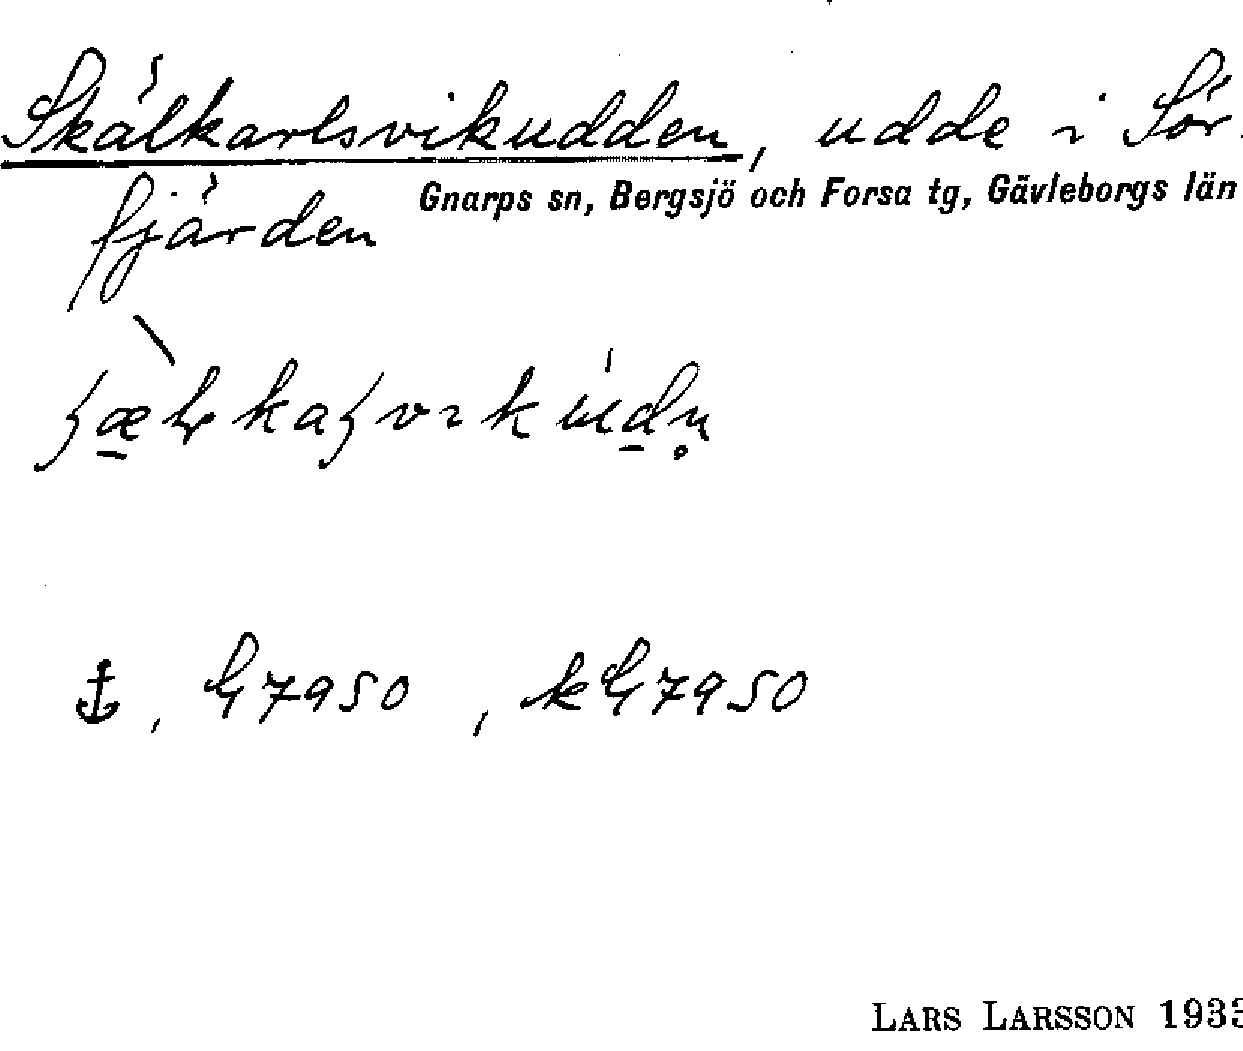 Skälkarlsvikudden, udde i Sör-
fjärden
Gnarps sn, Bergsjö och Forsa tg, Gävleborgs län
G7950, kG7950
LARS LARSSON 193